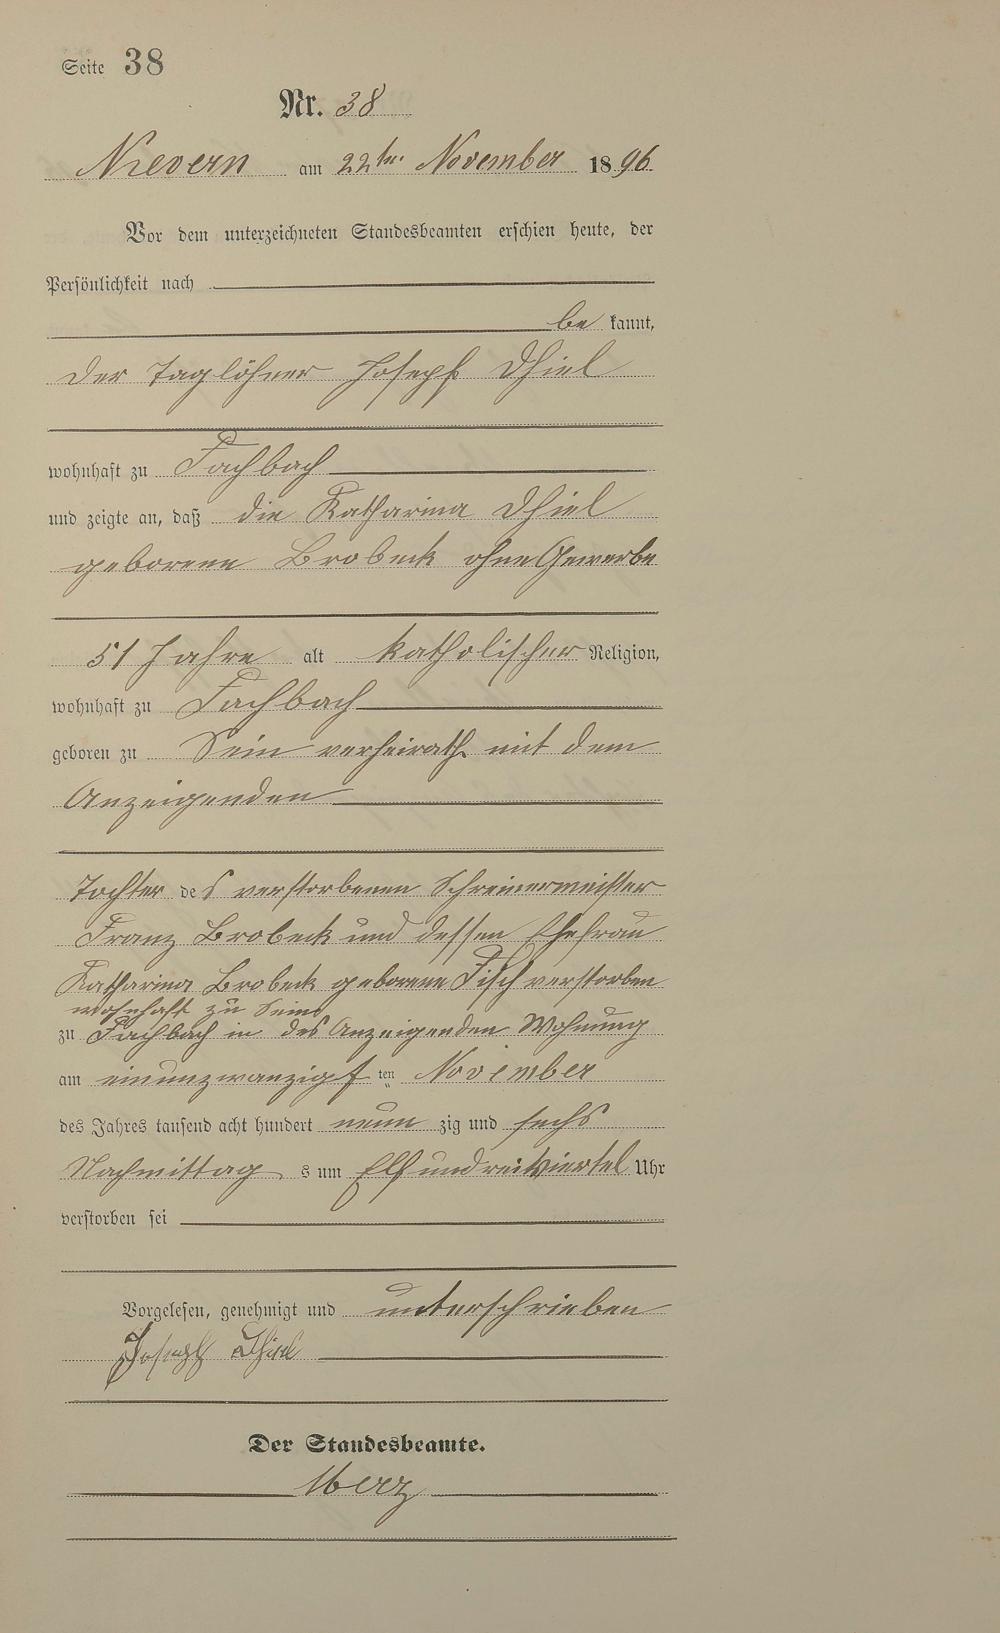 Seite 38
Nr. 38
Nievern am 22ten November 1896
Vor dem unterzeichneten Standesbeamten erschien heute, der
Persönlichkeit nach
be kannt,
der Taglöhner Joseph Dhiel
wohnhaft zu Fachbach
und zeigte an, daß die Katharina Dhiel
geborene Brobeck ohne Gewerbe
51 Jahre alt katholischer Religion,
wohnhaft zu Fachbach
geboren zu Sein verheirath mit dem
Anzeigenden
Tochter des verstorbenen Schreinermeister
Franz Brobeck und dessen Ehefrau
Katharina Brobeck geborene Fisch verstorben
wohnhaft zu Seins
zu Fachbach in des Anzeigenden Wohnung
am einunzwanzigst ten November
des Jahres tausend acht hundert neun zig und sechs
Nachmittag s um Elf undreiviertel Uhr
verstorben sei
Vorgelesen, genehmigt und unterschrieben
Joseph Dhiel
Der Standesbeamte.